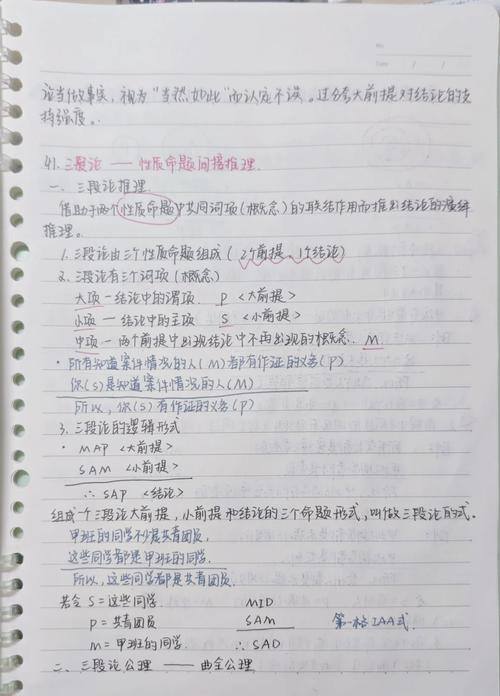 该当做事实，视为"当然如此"而认定不误。过分夸大前提对结论的支
持强度。
41. 三段论 —— 性质命题间接推理.
一、三段论推理
借助于两个性质命题中共同词项(概念)的联结作用而推出结论的演绎
推理。
1. 三段论由三个性质命题组成(2个前提、1个结论)
2. 三段论有三个词项(概念)
大项-结论中的谓项. P <大前提>
小项-结论中的主项 S <小前提>
中项-两个前提中出现结论中不再出现的概念. M
· 所有知道案件情况的人(M)都有作证的义务(P)
你(S)是知道案件情况的人(M)
所以，你(S)有作证的义务(P)
3. 三段论的逻辑形式
· MAP <大前提>
SAM <小前提>
∴ SAP <结论>
组成一个三段论大前提，小前提和结论的三个命题形式，叫做三段论的式.
甲班的同学不少是共青团员,
这些同学都是甲班的同学.
所以，这些同学都是共青团员.
若令 S=这些同学 MID
P=共青团员 SAM 第一格IAA式.
M=甲班的同学 ∴SAD
二、三段论公理 —— 曲全公理